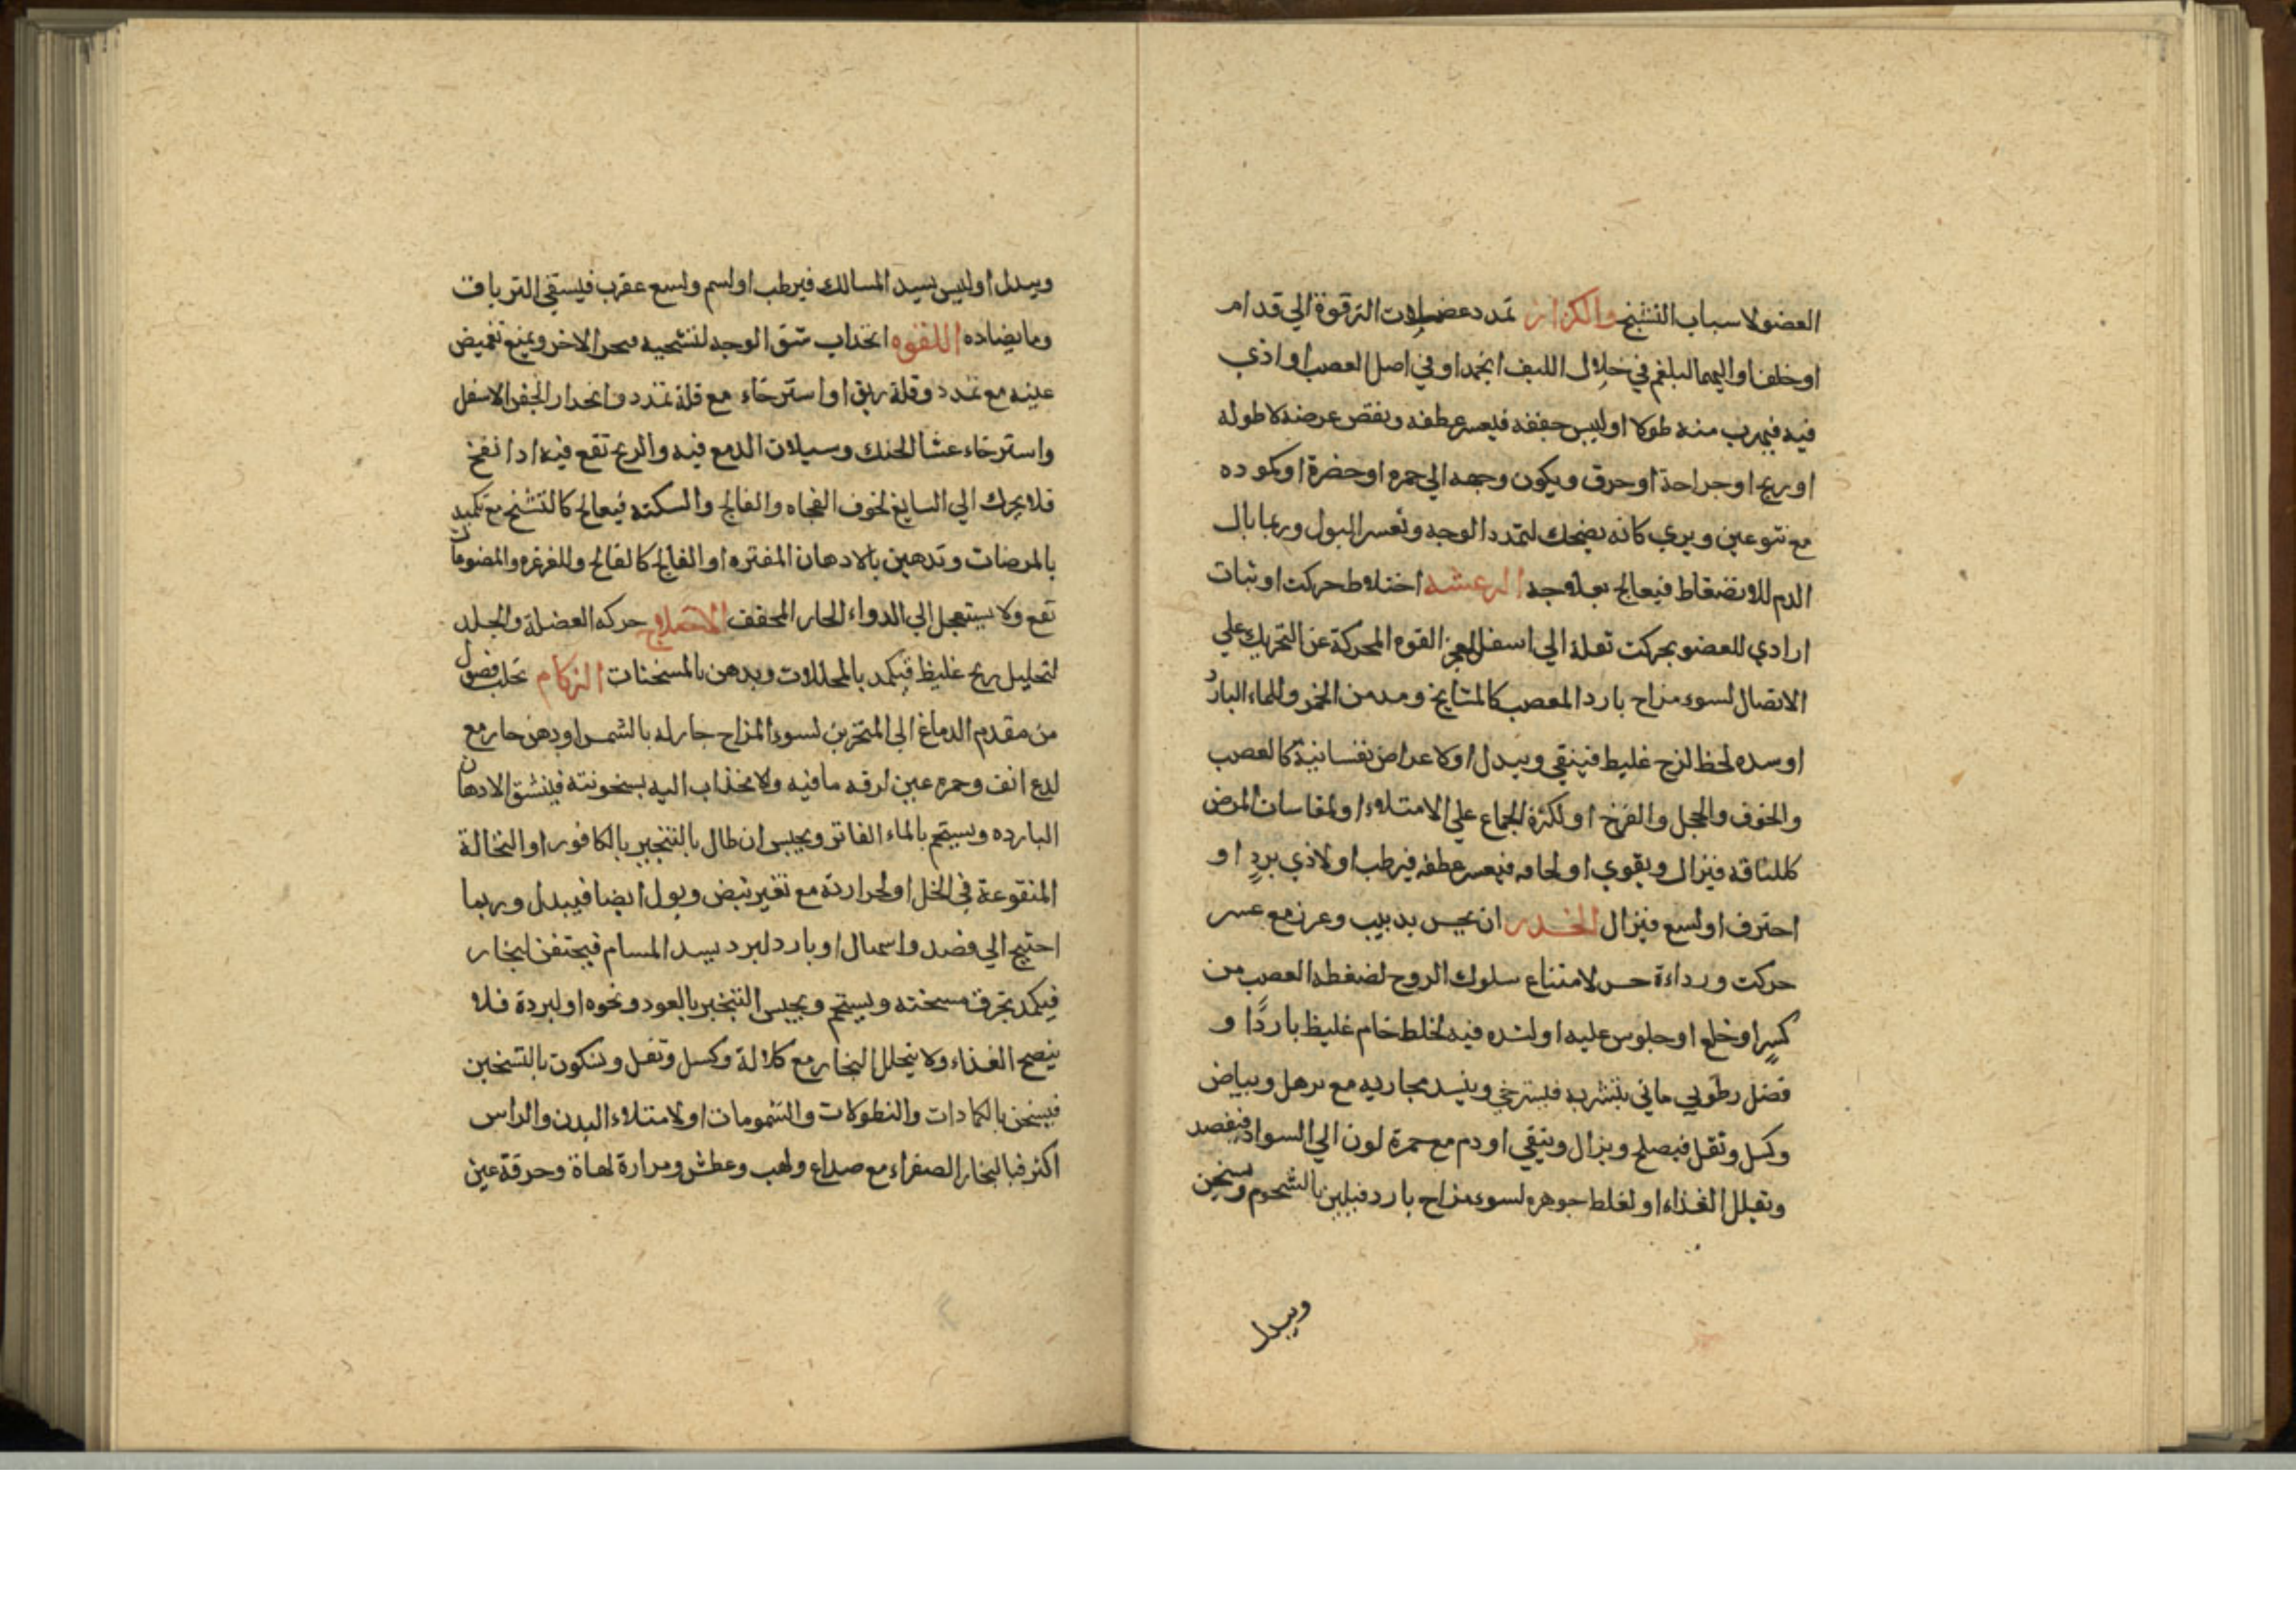 العضو لاسباب التشنج والكزاز تمدد عضلات الترقوة الي قدام
او خلف او اليهما لبلغم في خلال الليف انجمد او في اصل العصب او اذي
فيه فيهرب منه طولا او ليبس جففه فيعسر عطفه ونقص عرضه لا طوله
او ريح او جراحة او حرق ويكون وجهه الي حمره او خضرة او كموده
مع نتو عين ويري كانه يضحك لتمدد الوجه وتعسر البول وربما بال
الدم للانضغاط فيعالج بعلاجه الرعشه اختلاط حركت او ثبات
ارادي للعضو بحركت تعله الي اسفل لعجز القوه المحركة عن التحريك علي
الاتصال لسوء مزاج بارد العصب كالمشايخ ومدمن الخمر والماء البارد
او سده لخلط لزج غليط فينقي ويبدل او لاعراض نفسانية كالغضب
والخوف والخجل والفرح او لكثرة الجماع علي الامتلاء او لمقاسات المرض
كالناقه فيزال ويقوي او لجافه فيعسر عطفه فيرطب او لاذي برد او
احترق او لسع فيزال الخدر ان يحس بدبيب وغرز مع عسر
حركت ورداءة حس لامتناع سلوك الروح لضغطه العصب من
كسر او خلع او جلوس عليه او لشده فيه لخلط خام غليظ باردًا و
فضل رطوبي مائي يتشربه فيسترخي وينسد مجاريه مع ترهل وبياض
وكسل وثقل فيصلح ويزال وينقي او دم مع حمرة لون الي السواد فيفصد
وتقلل الغذاء او لغلظ جوهره لسوء مزاج بارد فيلين بالشحوم ويسخن
ويبدل
ويبدل او ليبس يسد المسالك فيرطب او لسم ولسع عقرب فيسقي الترياق
وما يضاده اللقوه انجذاب شق الوجه لتشنجه الاخر ويمنع تغميض
عينه مع تمدد وقلة ريق او استرخاء مع قلة تمدد وانحدار الجفن الاسفل
واسترخاء غشا الحنك وسيلان الدمع فيه والريح تقع فيه اذا نفخ
فلا يحرك الي السابع لخوف الفجاه والفالج والسكته فيعالج كالتشنج مع تكميد
بالمرضات وتدهين بالادهان المفتره او الفالج كالفالج وللغرغره والمضوغات
تقع ولا يستعجل الي الدواء الحار المجفف الاختلاج حركه العضلة والجلد
لتحليل ريح غليظ فيكمد بالمحللات ويدهن بالمسخنات الزكام تحلب فضول
من مقدم الدماغ الي المنخرين لسوء المزاج حار له بالشمس او دهن حار مع
لدع انف وحمره عين لرقه ما فيه ولانجذاب اليه بسخونته فينشق الادهان
البارده ويستحم بالماء الفاتر ويحبس ان طال بالتبخير بالكافور او النخالة
المنقوعة في الخل او لحرارته مع تغير نبض وبول ايضا فيبدل وربما
احتيج الي فصد واسهال او بارد لبرد يسد المسام فيحتقن البخار
فيكمد بخرق مسخنه ويستحم ويحبس التبخير بالعود ونحوه او لبردة فلا
ينضج الغذاء ولا يتحلل البخار مع كلالة وكسل وثقل وسكون بالتسخين
فيسخن بالكمادات والنطولات والشمومات او لامتلاء البدن والراس
اكثر فبالبخار الصفراء مع صداع ولهب وعطش ومرارة لهاة وحرقة عين